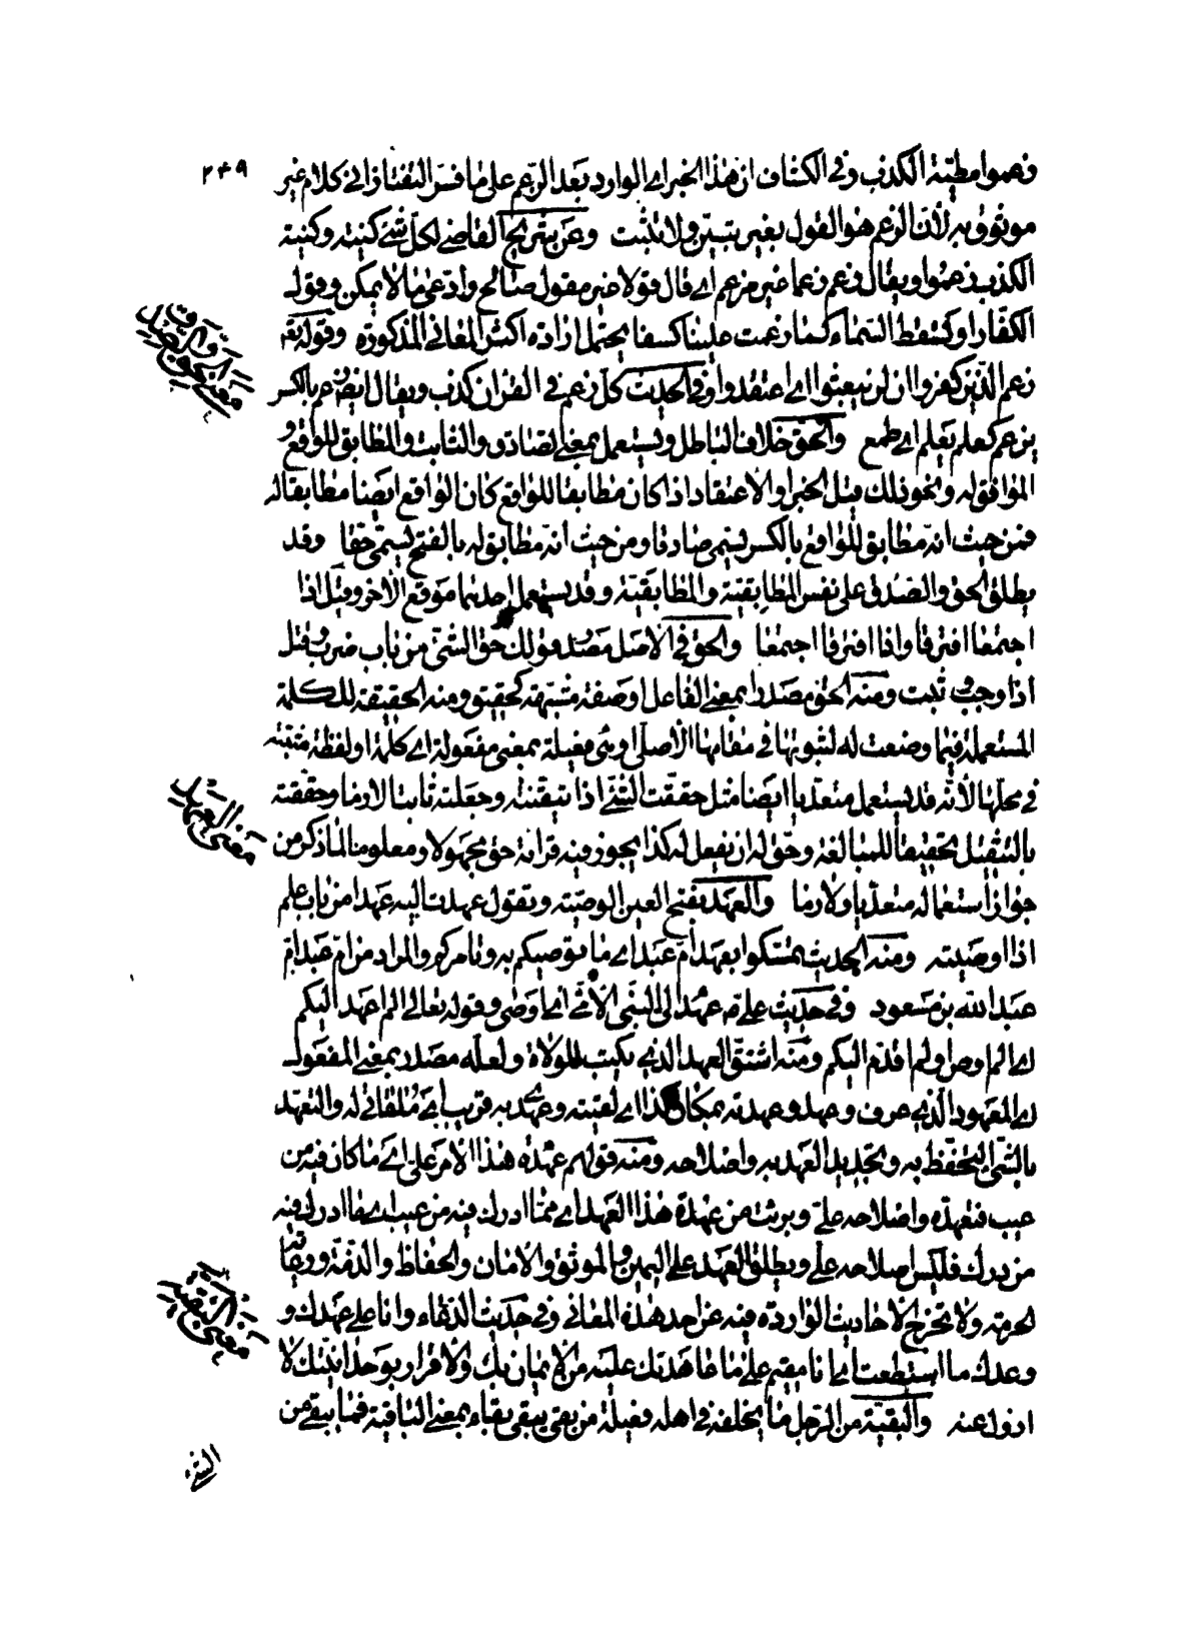 ٢٤٩
زعموا مطية الكذب وفي الكشاف ان هذا الخبر اي الوارد بعد الزعم على ما فسر التفتازاني كلام غير
موثوق به لأن الزعم هو القول بغير تبين ولا تثبت وعن شريح القاضي لكل شيء كنية وكنية
الكذب زعموا ويقال زعم زعما غير مزعم اي قال قولا غير مقول صالح وادعى ما لا يمكن وقول
الكفار او تسقط السماء كما زعمت علينا كسفا يحتمل ارادة اكثر المعاني المذكورة وقوله تعالى
زعم الذين كفروا ان لن يبعثوا اي اعتقدوا وفي الحديث كل زعم في القرآن كذب ويقال ايضا زعم بالكسر
يزعم كعلم يعلم اي طمع والحق خلاف الباطل ويستعمل بمعنى الصادق والثابت والمطابق للواقع و
الموافق له ونحو ذلك قيل الخبر او الاعتقاد اذا كان مطابقا للواقع كان الواقع ايضا مطابقا له
فمن حيث انه مطابق للواقع بالكسر يسمى صادقا ومن حيث انه مطابق له بالفتح يسمى حقا وقد
يطلق الحق والصدق على نفس المطابقية والمطابقية وقد يستعمل احدهما موقع الآخر وقيل اذا
اجتمعا افترقا واذا افترقا اجتمعا والحق في الاصل مصدر قولك حق الشيء من باب ضرب وقتل
اذا وجب وثبت ومنه الحق مصدرا بمعنى الفاعل او صفة مشبهة كحقيق ومنه الحقيقة للكلمة
المستعملة فيما وضعت له لثبوتها في مقامها الاصلي او هي فعيلة بمعنى مفعولة اي كلمة او لفظة مثبتة
في محلها لأنه قد يستعمل متعديا ايضا مثل حققت الشيء اذا تيقنته وجعلته ثابتا لازما وحققته
بالتثقيل تحقيقا للمبالغة وحق له ان يفعل له كذا يجوز فيه قراءة حق مجهولا ومعلوما لما ذكر من
جواز استعماله متعديا ولازما والعهد بفتح العين الوصية وتقول عهدت اليه عهدا من باب علم
اذا اوصيته ومنه الحديث تمسكوا بعهد ام عبد اي ما يوصيكم به ويأمركم والمراد من ام عبد ابن
عبد الله بن مسعود وفي حديث علي عهد الى النبي الأمي اي اوصى وقوله تعالى الم اعهد اليكم
اي الم اوص ولم اقدم اليكم ومنه اشتق العهد الذي يكتب للولاة ولعله مصدر بمعنى المفعول
اي المعهود الذي عرف وعهد وعهدته بمكان كذا اي لقيته وعهدي به قريب اي ملقاتي له والتعهد
بالشيء التحفظ به وتجديد العهد به واصلاحه ومنه قولهم عهدة هذا الامر علي اي ما كان فيه من
عيب فتعهده واصلاحه علي وبرئت من عهدة هذا العهد اي مما ادرك فيه من عيب اي ما ادرك فيه
من درك فليس اصلاحه علي ويطلق العهد على اليمين والموثق والامان والحفاظ والذمة ورعاية
الحرمة ولا تخرج الاحاديث الواردة فيه عن احد هذه المعاني وفي حديث الدعاء وانا على عهدك و
وعدك ما استطعت اي انا مقيم على ما عاهدتك عليه من الايمان بك والاقرار بوحدانيتك لا
ازول عنه والبقية من الرجل ما يخلفه في اهله فعيلة من بقي يبقى بقاء بمعنى الباقية فما يبقى من
معنى العهد